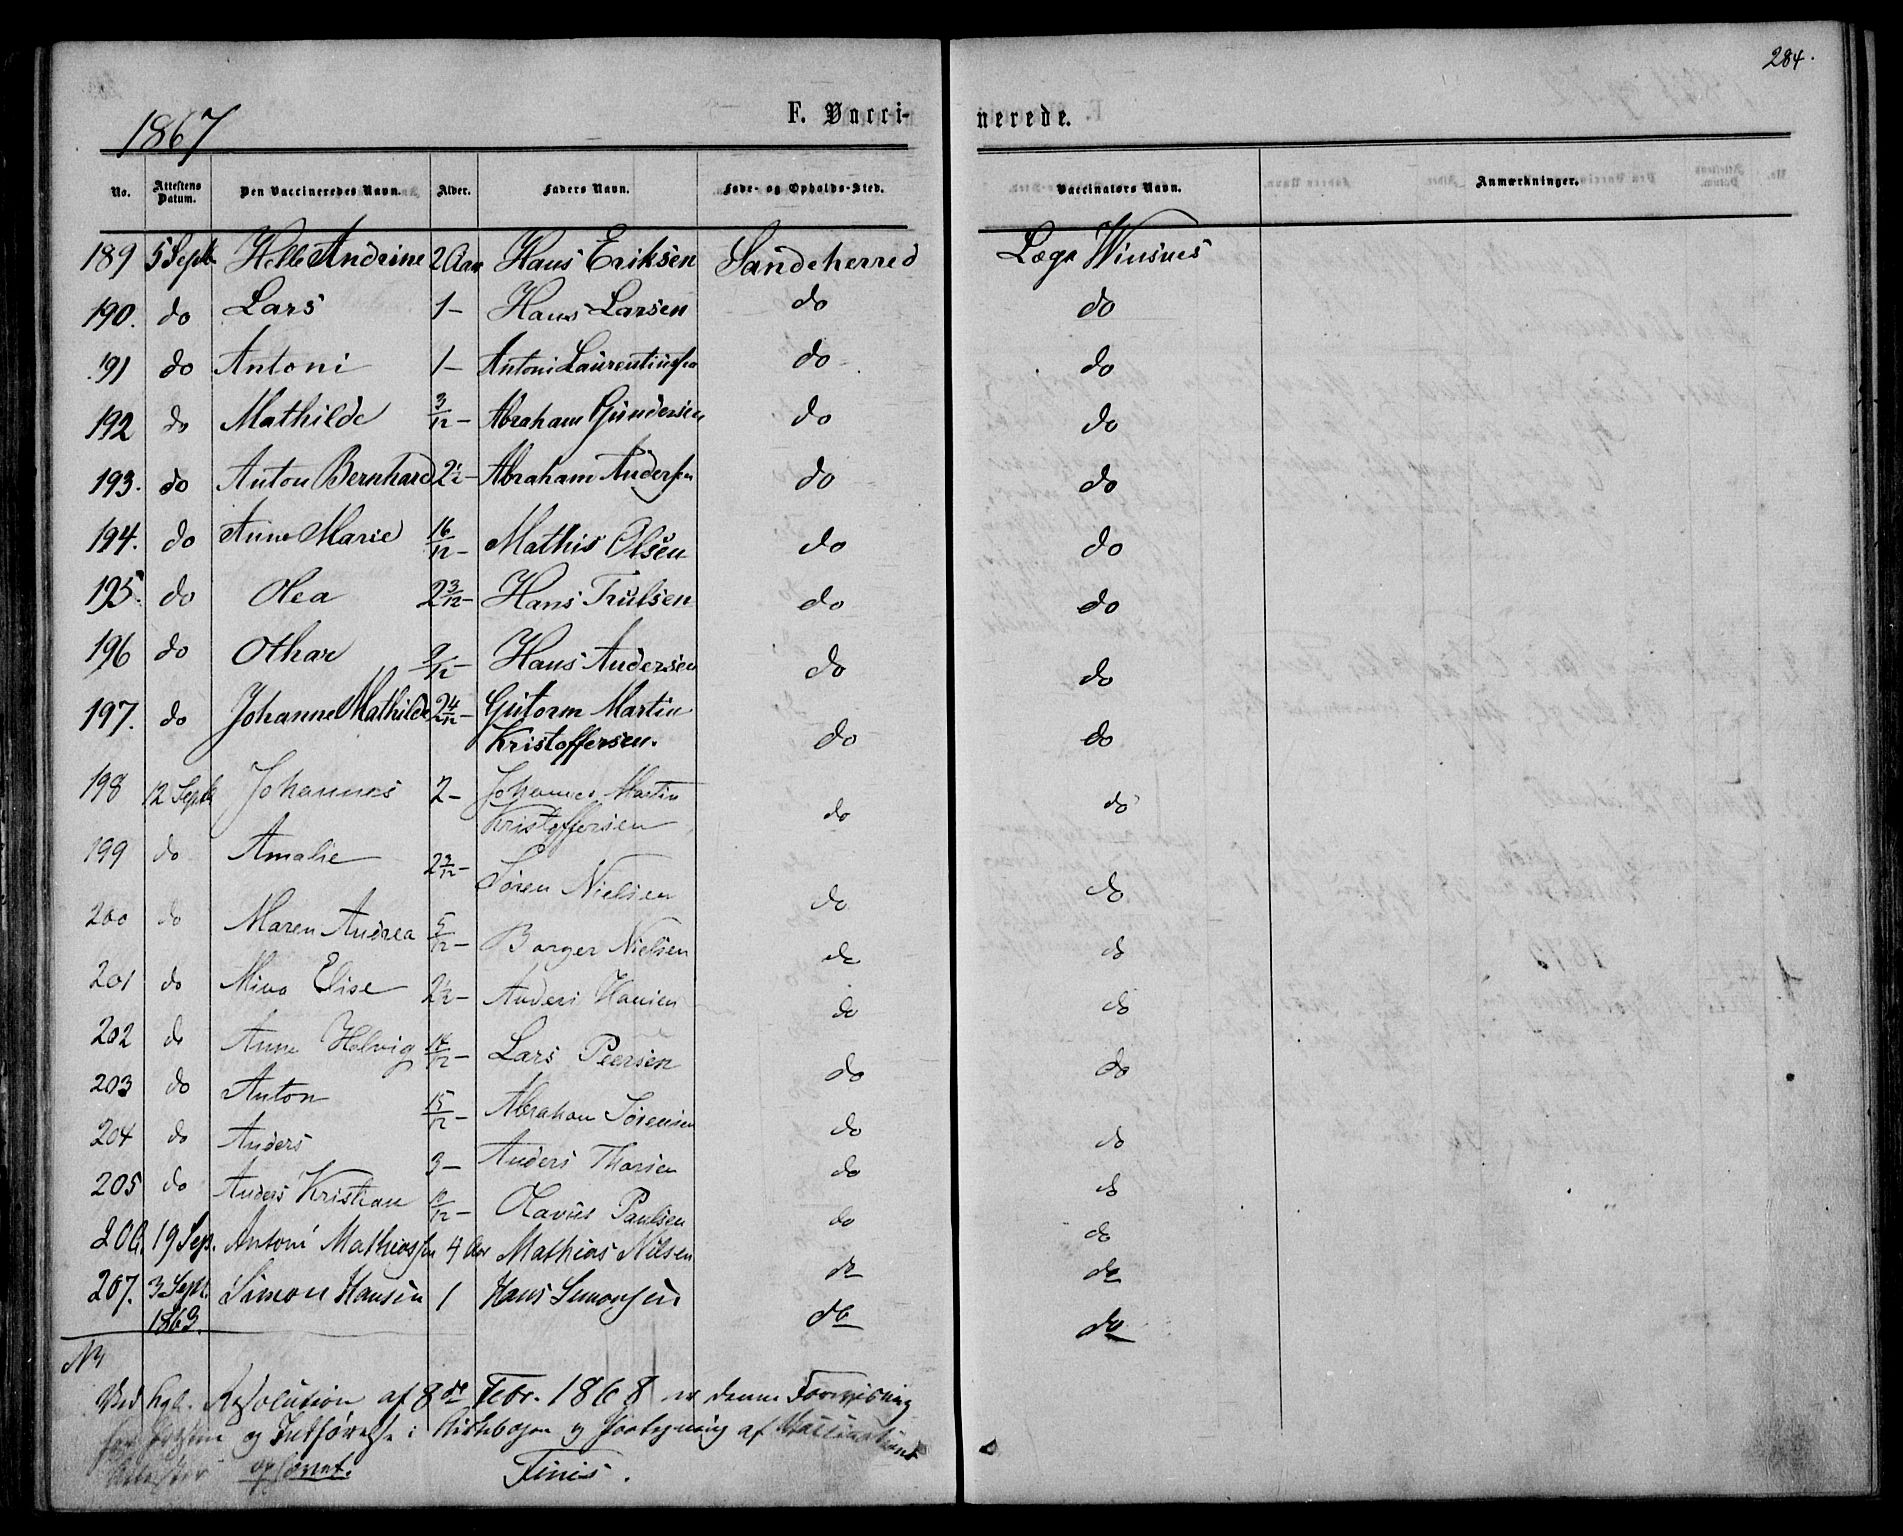 284.
1867
F. Vacci- nerede.
No. Attestens Datum. Den Vaccineredes Navn. Alder. Faders Navn. Føde- og Opholds-Sted. Vaccinatørs Navn. Anmærkninger.
189 5 Sept Helle Andrine 2 Aar Hans Eriksen Sandeherred Læge Winsnes
190. do Lars 1- Hans Larsen do do
191 do Antoni 1- Antoni Laurentiussen do do
192 do Mathilde 3/12- Abraham Gundersen do do
193. do Anton Bernhard 2½- Abraham Andersen do do
194. do Anne Marie 16/12- Mathis Olsen do do
195. do Olea 2 3/12- Hans Trulsen do do
196 do Othar 9/12- Hans Andersen do do
197. do Johanne Mathilde 2 4/12- Gutorm Martin
Kristoffersen. do do
198 12 Sept Johannes 2- Johannes Martin
Kristoffersen do do
199 do Amalie 2 9/12- Søren Nielsen do do
200 do Maren Andrea 5/12- Borger Nielsen do do
201 do Mina Elise 2½- Anders Hansen do do
202 do Anne Helvig /12- Lars Peersen do do
203 do Anton 15/12- Abraham Sørensen do do
204 do Anders 3- Anders Thorsen do do
205 do Anders Kristian /12- Olavus Paulsen do do
206. 19 Sep. Antoni Mathiassen 4 Aar Mathias Nilsen do do
207. 3 Sept. 1863. Simon Hansen 1 Hans Simonsen do do
Ved Kgl. Resolution af 8de Febr. 1868 er denne
og Indførelse i Kirkebogen af
ophævet. Finis.